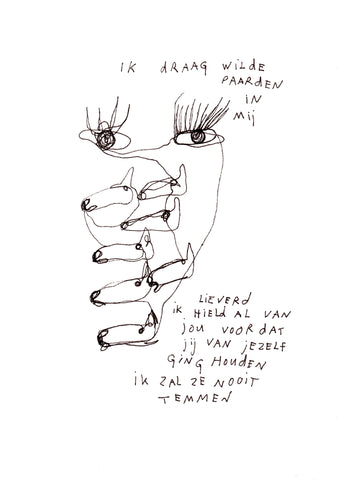 ik DRAAG WILDE
PAARDEN
IN
Mij
LIEVERD
ik HIELD AL VAN
JOU VOORDAT
jij VAN JEZELF
GiNG HOUDEN
ik ZAL ZE NOOIT
TEMMEN